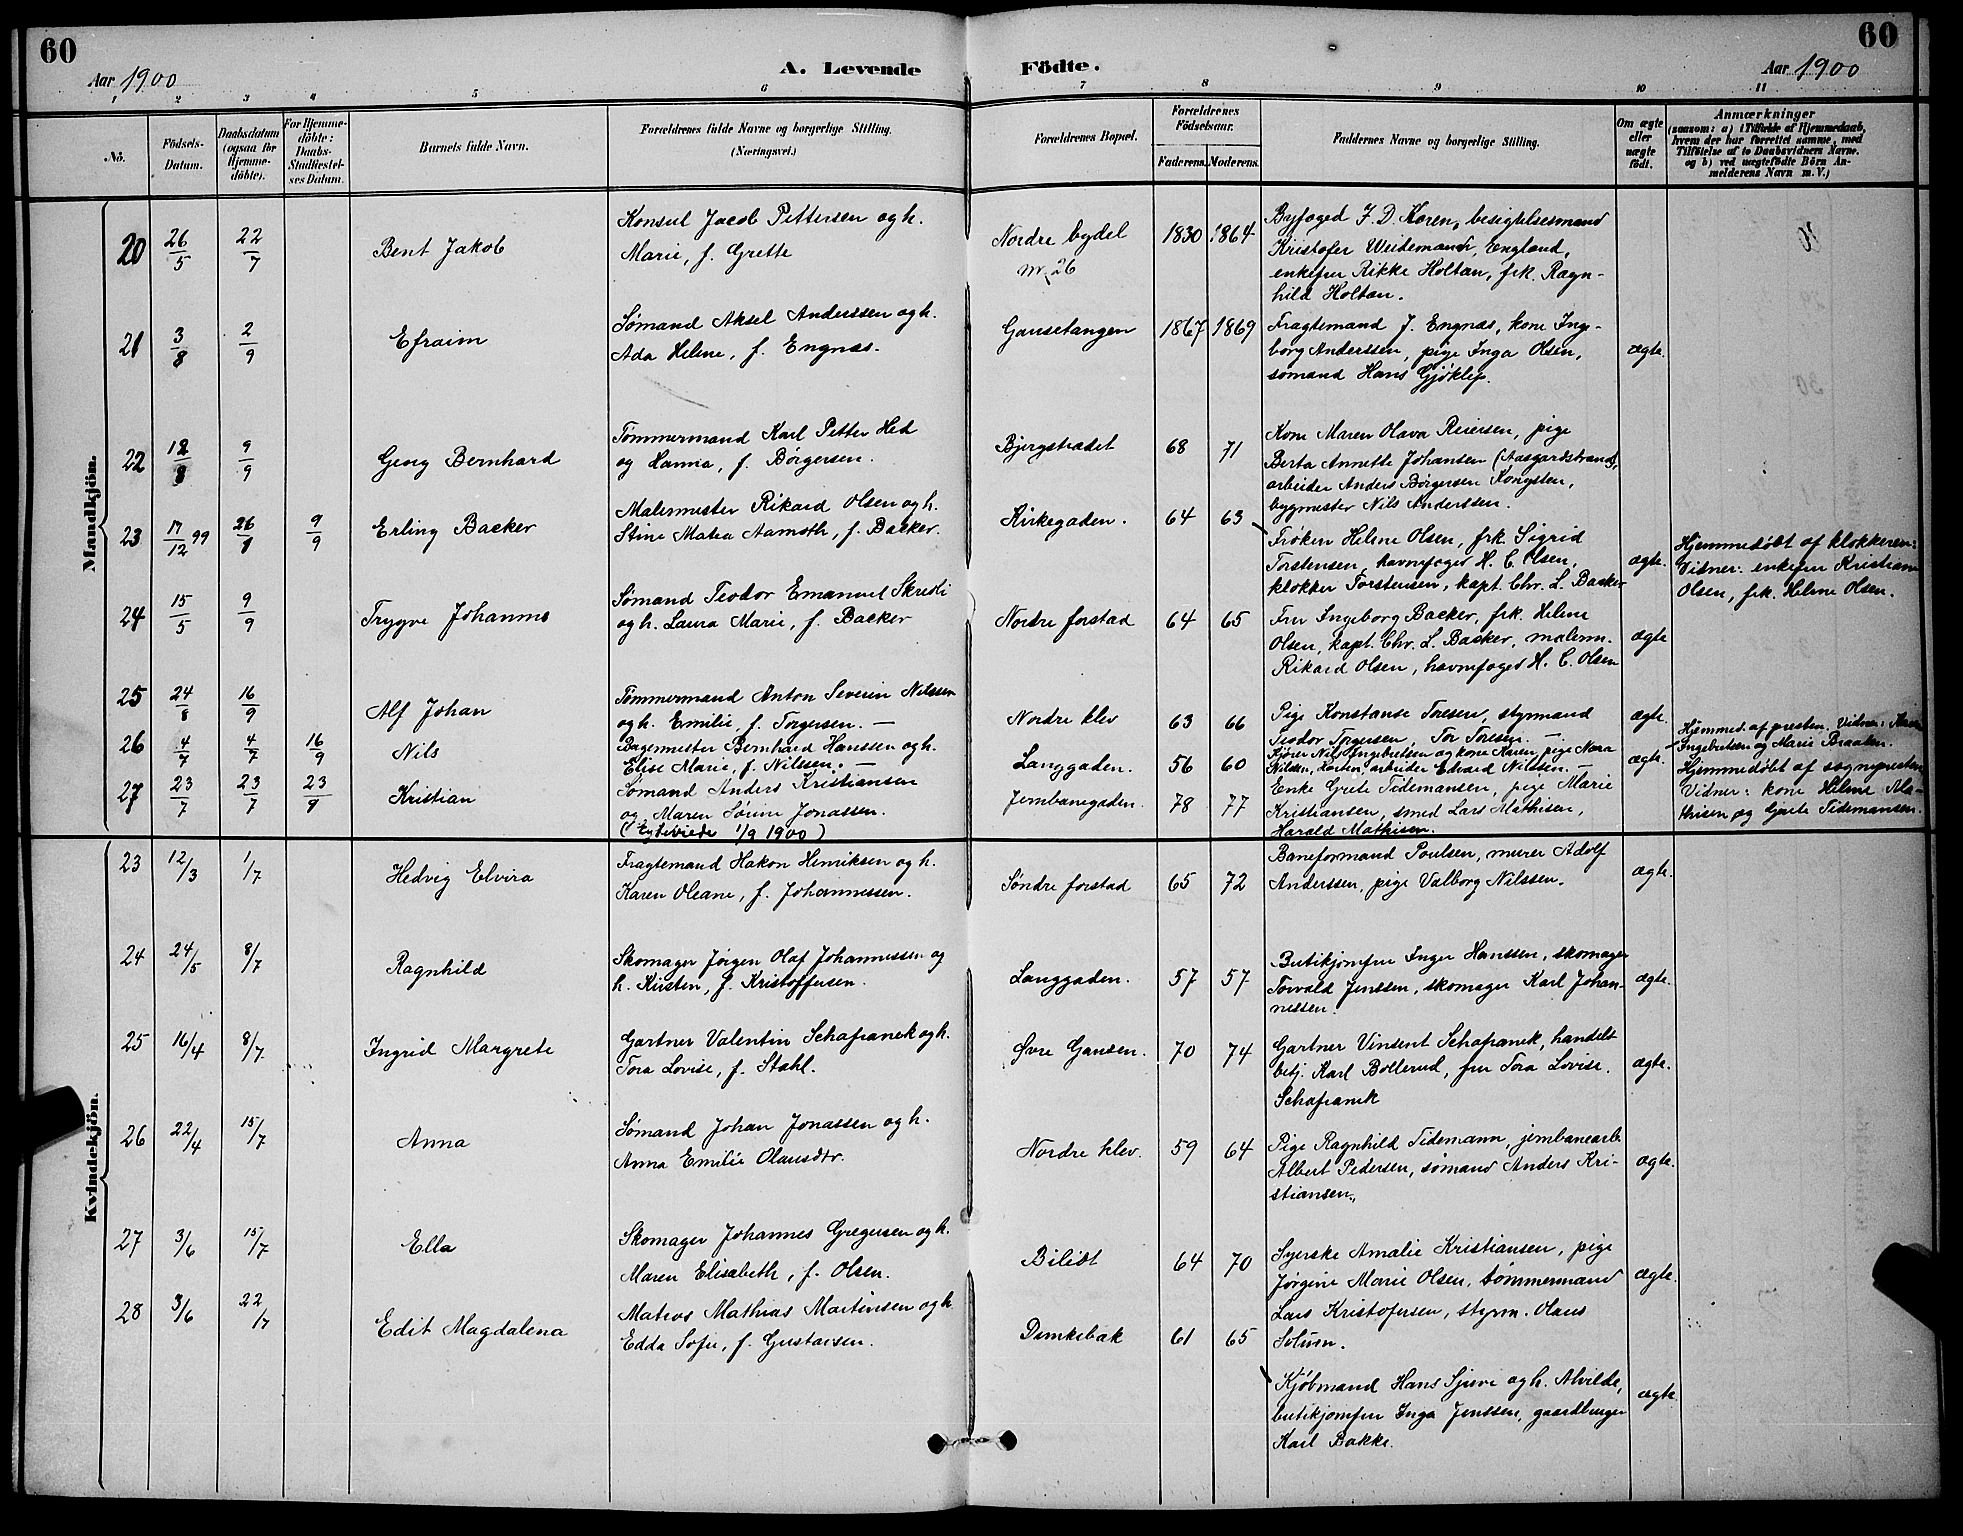 60
Aar 1900
A. Levende Födte.
60
Aar 1900
1 2 3 4 5 6 7 8 9 10 11
No.
Födsels-Datum.
Daabsdatum (ogsaa for Hjemme-döbte).
For Hjemme-döbte: Daabs-Stadfæstel-ses Datum.
Barnets fulde Navn.
Forældrenes fulde Navne og borgerlige Stilling.
(Næringsvei.)
Forældrenes Bopæl.
Forældrenes Födselsaar.
Faderens. Moderens.
Faddernes Navne og borgerlige Stilling.
Om ægte eller uægte födt.
Anmærkninger
(saasom: a) i Tilfælde af Hjemmedaab,
hvem der har forrettet samme, med
Tilföielse af to Daabsvidners Navne.
og b) ved uægtefödte Börn An-
melderens Navn m. V.)
Mandkjön.
20 26/5 22/7 Bent Jakob
Konsul Jacob Pettersen og h.
Marie, f. Grette
Nordre bydel
nr. 26
1830 1864
Byfoged F. D. Koren, besigtelsesmand
Kristofer Weidemann, England,
enkefru Rikke Holtan, frk. Ragn-
hild Holtan.
21 3/8 2/9 Efraim
Sømand Aksel Anderssen og h.
Ada Helene, f. Engnæs.
Gausetangen 1867 1869
Fragtemand J. Engnæs, kone Inge-
borg Anderssen, pige Inga Olsen,
sømand Hans Gjøklep.
ægte.
22 12/8 9/9 Georg Bernhard
Tømmermand Karl Petter Hed
og Hanna, f. Børgersen.
Bjergstrædet 68 71
Kone Maren Olava Reiersen, pige
Berta Annette Johansen (Aasgaardstrand),
arbeider Anders Børgersen Kongsten,
bygmester Nils Anderssen.
23 17/12 99 26/8 9/9 Erling Backer
Malermester Rikard Olsen og h.
Stine Matea Aamoth, f. Backer.
Kirkegaden. 64 63
Frøken Helene Olsen, frk. Sigrid
Torstensen, havnefoged H. C. Olsen,
klokker Torstensen, kapt. Chr. L. Backer
ægte.
Hjemmedøbt af klokkeren:
Vidner: enkefru Kristiane
Olsen, frk. Helene Olsen.
24 15/5 9/9 Trygve Johannes
Sømand Teodor Emanuel Skredli
og h. Laura Marie, f. Backer
Nordre forstad 64 65
Fru Ingeborg Backer, frk. Helene
Olsen, kapt. Chr. L. Backer, malerm.
Rikard Olsen, havnefoged H. C. Olsen
ægte
25 24/8 16/9 Alf Johan
Tømmermand Anton Severin Nilssen
og h. Emilie, f. Torgersen. —
Nordre klev 63 66
Pige Konstanse Toresen, styrmand
Teodor Torgersen, Tor Toresen. —
ægte.
26 4/7 4/7 16/9 Nils
Bagermester Bernhard Hanssen og h.
Elise Marie, f. Nilssen. —
Langgaden. 56 60
Kjører Nils Ingebretsen og kone Karen, pige Nora
Nilssen, Horten, arbeider Edvard Nilssen. —
ægte.
Hjemmed. af presten. Vidner: Karen
Ingebretsen og Marie Braaten.
27 23/7 23/7 23/9 Kristian
Sømand Anders Kristiansen
og Maren Sørine Jonassen.
(Egteviede 1/9 1900)
Jernbanegaden. 78 77
Enke Grete Tidemansen, pige Marie
Kristiansen, smed Lars Mathisen,
Harald Mathisen.
Hjemmedøbt af sognepresten
Vidner: kone Helene Ma-
thisen og Grete Tidemansen.
Kvindekjön.
23 12/3 1/7 Hedvig Elvira
Fragtemand Hakon Henriksen og h.
Karen Oleane, f. Johannessen.
Søndre forstad 65 72
Baneformand Poulsen, murer Adolf
Anderssen, pige Valborg Nilssen.
ægte.
24 24/5 8/7 Ragnhild
Skomager Jørgen Olaf Johannessen og
h. Kirsten, f. Kristoffersen.
Langgaden. 57 57
Butikjomfru Inger Hanssen, skomager
Torvald Jenssen, skomager Karl Johan-
nessen.
ægte.
25 16/4 8/7 Ingrid Margrete
Gartner Valentin Schafranek og h.
Tora Lovise, f. Stahl.
Øvre Gausen. 70 74
Gartner Vinsent Schafranek, handels
betj. Karl Bollerud, fru Tora Lovise.
Schafranek
ægte.
26 22/4 15/7 Anna
Sømand Johan Jonassen og h.
Anna Emilie Olausdtr.
Nordre klev. 59 64
Pige Ragnhild Tidemann, jernbanearb.
Albert Pedersen, sømand Anders Kri-
stiansen.
ægte.
27 3/6 15/7 Ella
Skomager Johannes Gregersen og h.
Maren Elisabeth, f. Olsen.
Biledt 64 70
Syerske Amalie Kristiansen, pige
Jørgine Marie Olsen, tømmermand
Lars Kristofersen, styrm. Olaus
Solum.
ægte.
28 3/6 22/7 Edit Magdalena
Mateos Mathias Martinsen og h.
Edda Sofie, f. Gustavsen.
Dunkebæk 61 65
Kjøbmand Hans Sjuve og h. Alvilde,
butikjomfru Inga Jenssen, gaardbruger
Karl Bakke.
ægte